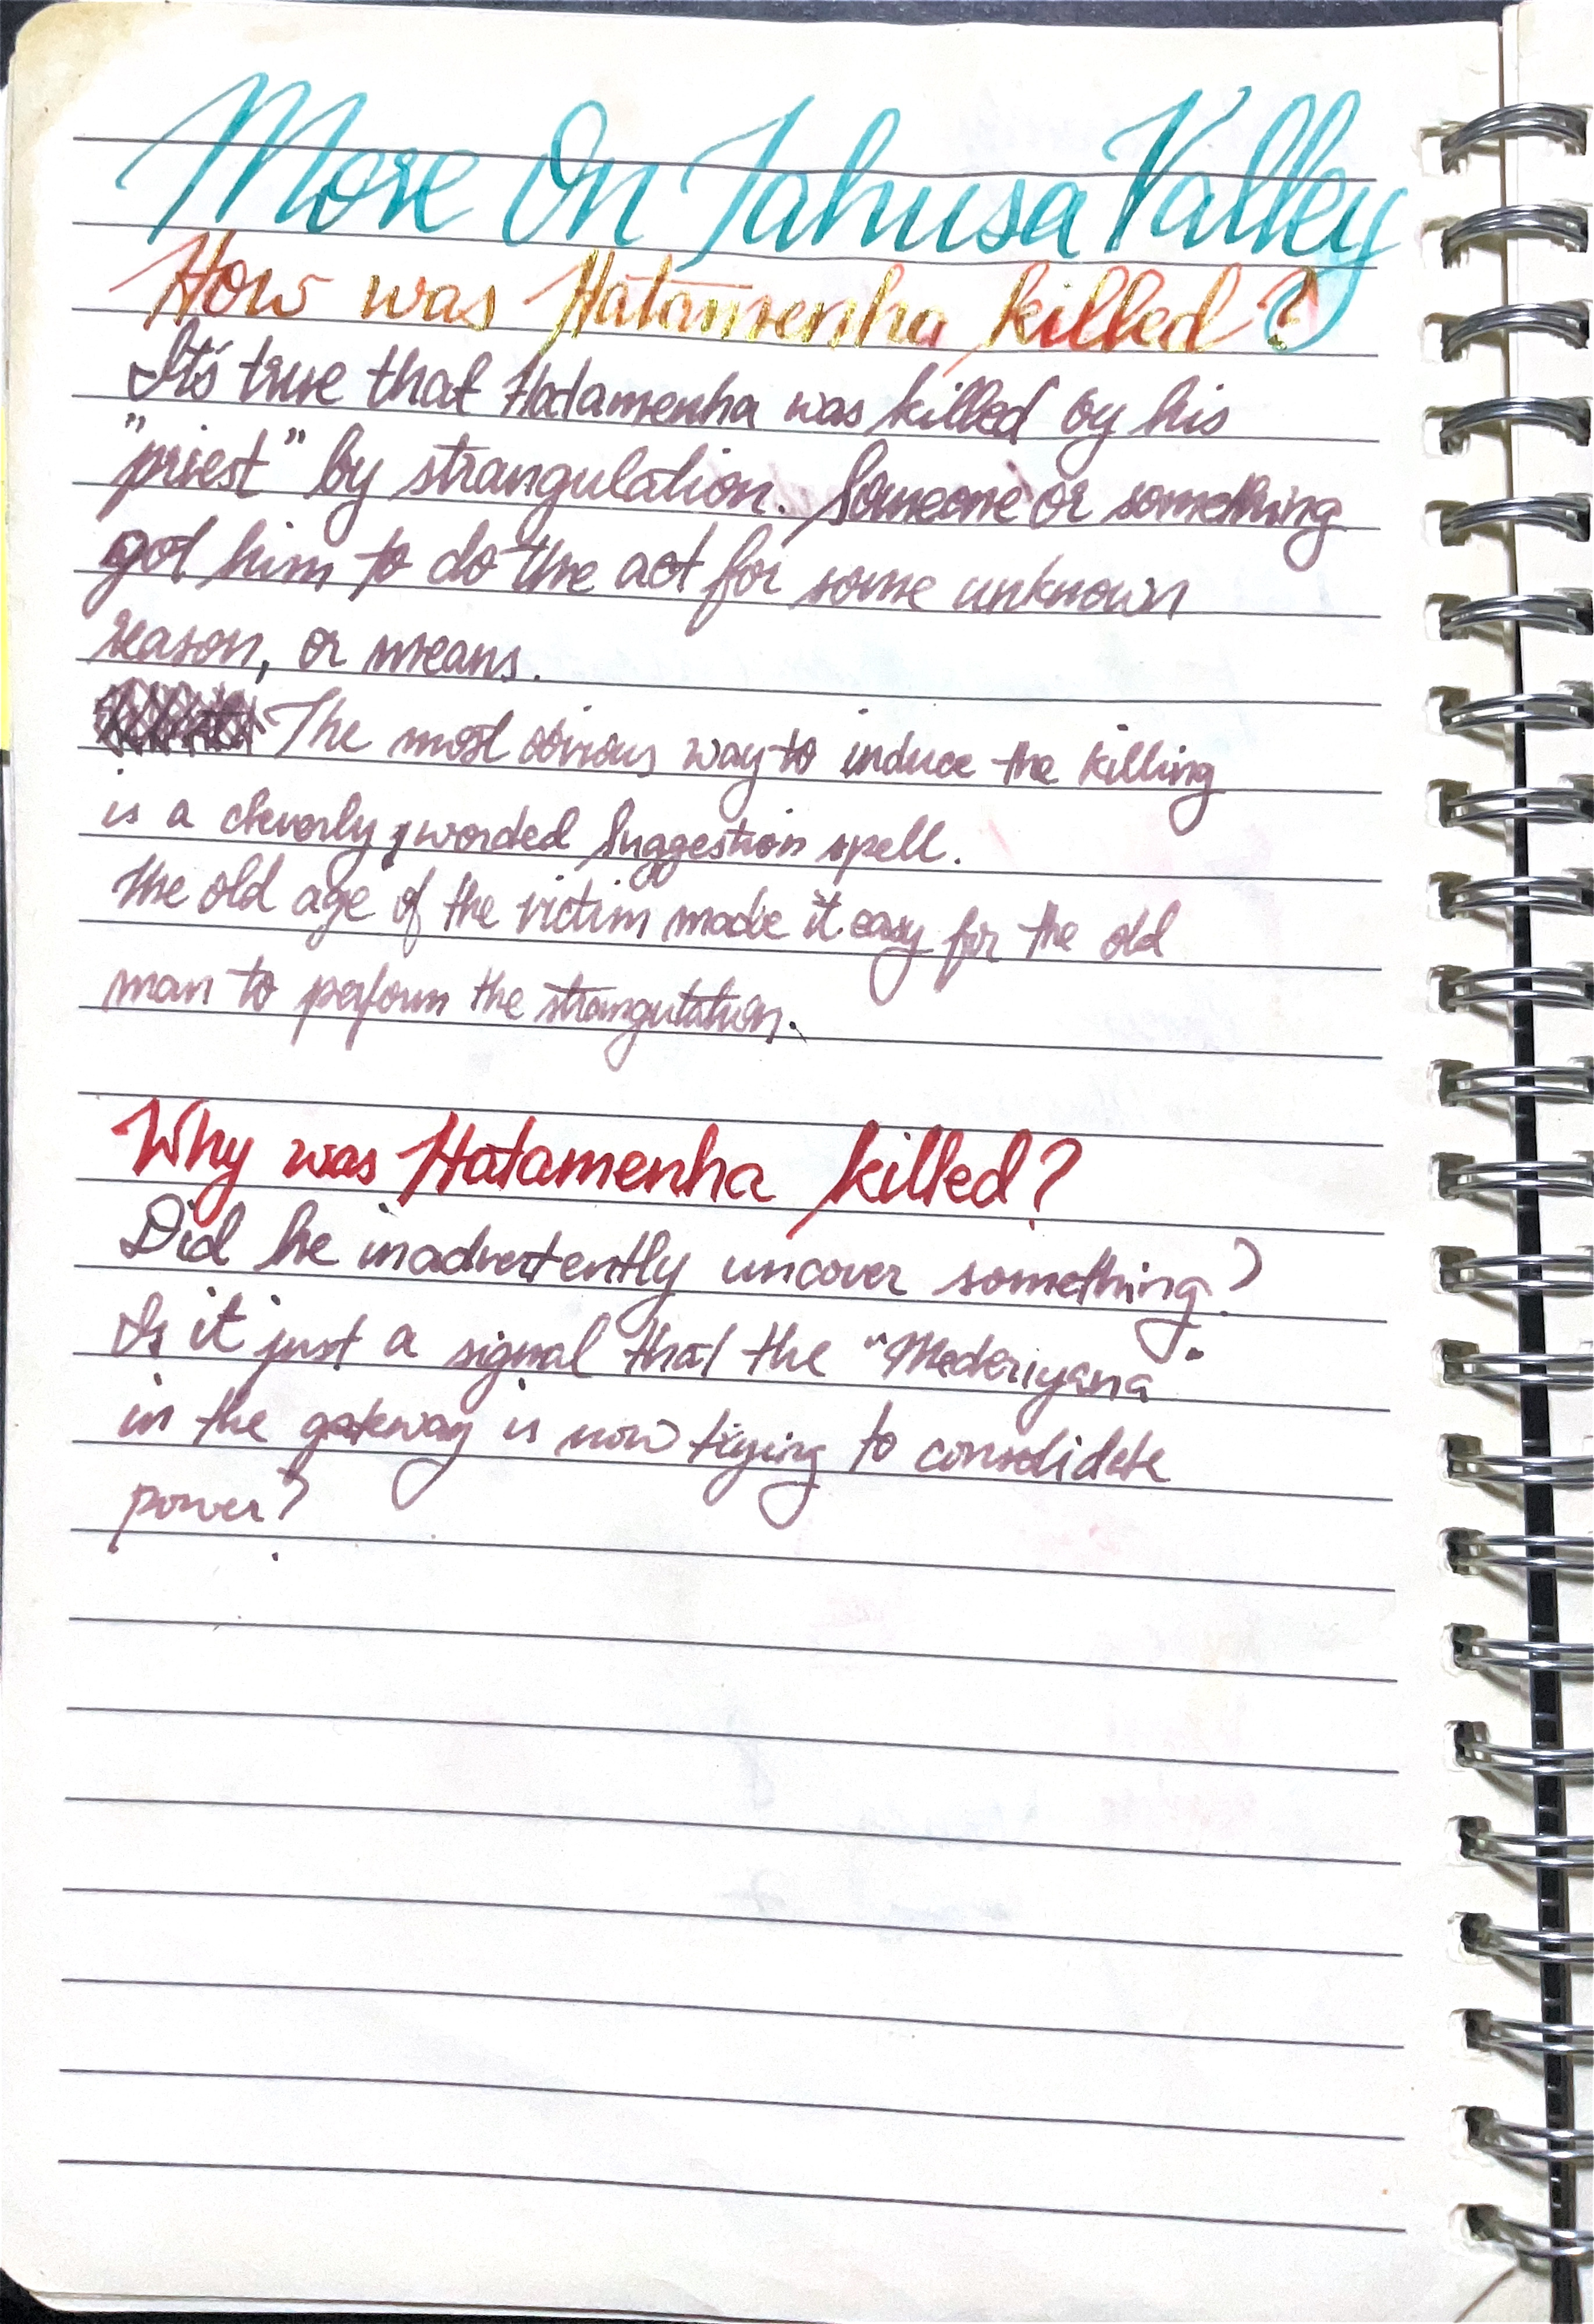 More On Jahusa Valley
How was Hatamenha killed?
It's true that Hatamenha was killed by his
"priest" by strangulation. Someone or something
got him to do the act for some unknown
reason, or means.
The most obvious way to induce the killing
is a cleverly, worded Suggestion spell.
The old age of the victim made it easy for the old
man to perform the strangulation.
Why was Hatamenha killed?
Did he inadvertently uncover something?
Is it just a signal that the "Mederiyana"
in the gateway is now trying to consolidate
power?